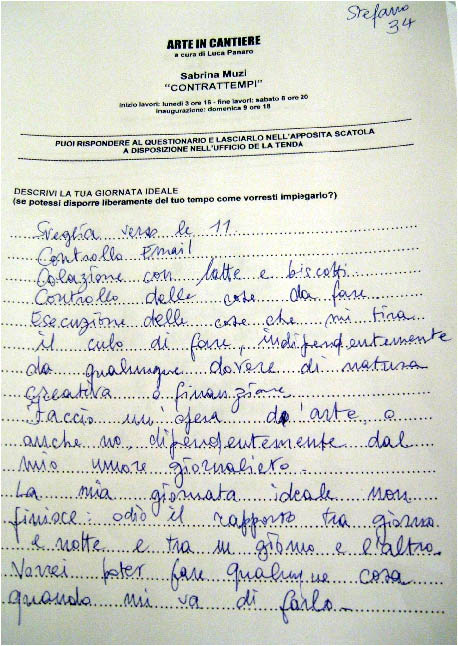 Stefano
34
ARTE IN CANTIERE
a cura di Luca Panaro
Sabrina Muzi
"CONTRATTEMPI"
inizio lavori: lunedì 3 ore 15 - fine lavori: sabato 8 ore 20
inaugurazione: domenica 9 ore 18
PUOI RISPONDERE AL QUESTIONARIO E LASCIARLO NELL'APPOSITA SCATOLA
A DISPOSIZIONE NELL'UFFICIO DE LA TENDA
DESCRIVI LA TUA GIORNATA IDEALE
(se potessi disporre liberamente del tuo tempo come vorresti impiegarlo?)
Sveglia verso le 11
Controllo Email
Colazione con latte e biscotti
Controllo delle cose da fare
Esecuzione delle cose che mi tira
il culo di fare, indipendentemente
da qualunque dovere di natura
creativa o finanziaria
Faccio un'opera d'arte, o
anche no, dipendentemente dal
mio umore giornaliero.
La mia giornata ideale non
finisce: odio il rapporto tra giorno
e notte e tra un giorno e l'altro.
Vorrei poter fare qualunque cosa
quando mi va di farlo.